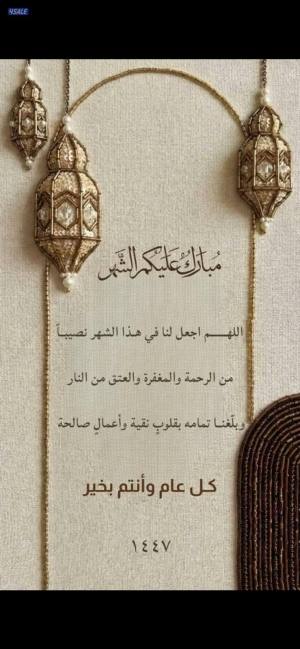 4SALE
مبارك عليكم الشهر
اللهــــم اجعل لنا في هذا الشهر نصيباً
من الرحمة والمغفرة والعتق من النار
وبلّغنا تمامه بقلوبٍ نقية وأعمالٍ صالحة
كل عام وأنتم بخير
١٤٤٧